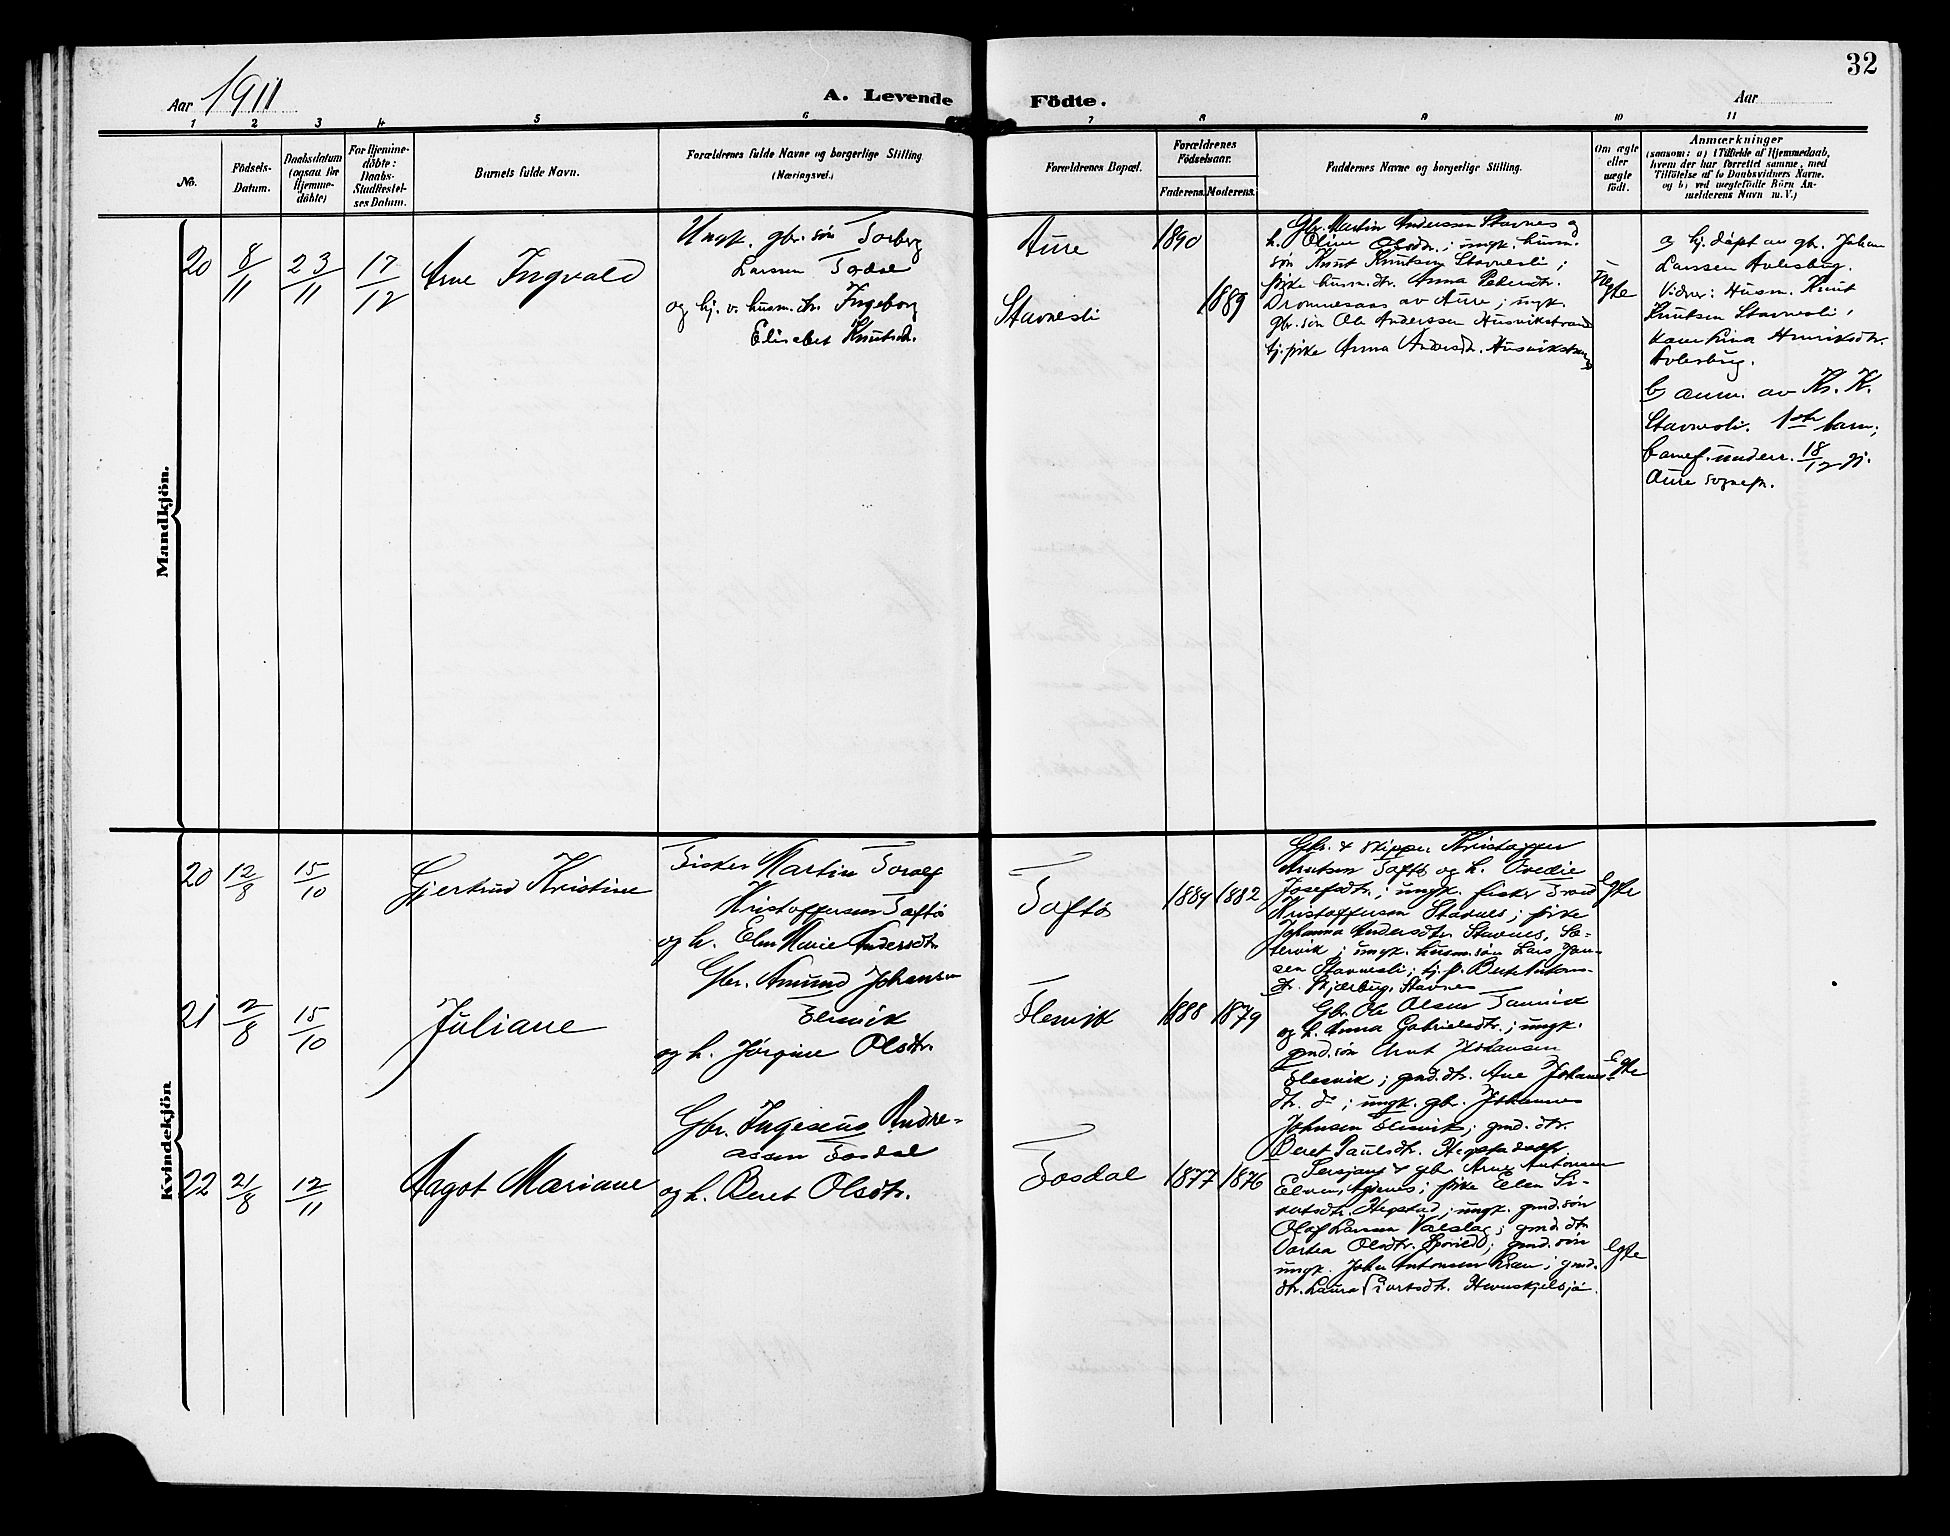 32
Aar 1911
A. Levende Födte.
Aar
1 2 3 4 5 6 7 8 9 10 11
No.
Födsels-
Datum.
Daabsdatum
(ogsaa for
Hjemme-
döbte)
For Hjemme-
döbte:
Daabs-
Stadfæstel-
ses Datum.
Barnets fulde Navn.
Forældrenes fulde Navne og borgerlige Stilling
(Næringsvei.)
Forældrenes Bopæl.
Forældrenes
Födselsaar.
Faderens. Moderens.
Faddernes Navne og borgerlige Stilling.
Om ægte
eller
uægte
født.
Anmærkninger
(saasom: a) i Tilfælde af Hjemmedaab,
hvem der har forrettet samme, med
Tilföielse af to Daabsvidners Navne,
og b) ved uægtefödte Börn An-
melderens Navn m. V.)
Mandkjön.
20 8/11 23/11 17/12 Arne Ingvald
Ungk. gbr. søn Torberg
Larssen
og hj. v. husm. dtr. Ingeborg
Elisabet Knutsdt.
Aure
Stavnesli
1890
1889
Gbr. Martin Andersen Stavnes og
h. Oline Olsdtr.; ungk. husm.
søn Knut Knutsen Stavnesli;
pike husm. dtr. Anna Petersdtr.
Dromnesaas av Aure; ungk.
gbr. søn Ole Anderssen Husvikstrand
tj. pike Anna Andersdtr. Husvikstrand
Uegte
a) hj. døpt av gb. Johan
Larssen
Vidner: Husm. Knut
Knutsen Stavnesli,
kone Lina Henriksdtr.
b) anm. av Kn. K.
Stavnesli. 1ste barn;
underr. 18/12 gj.
Aure sognepr.
Kvindekjön
20 12/8 15/10 Gjertrud Kristine
Fisker Martin Toralf
Kristoffersen Taftø
og h. Elen Marie Andersdtr.
Taftø
1884 1882
Gbr. & skipper Kristoffer
Knutsen Taftø og h. Ovedie
Josefsdtr.; ungk. fisker
Kristoffersen Stavnes; pike
Johanna Andersdtr. Stavnes, Sæ-
tervik; ungk. husm. søn Lars Jen-
sen Stavnesli; tj. p. Berit Antons-
dtr. Skjærbug, Stavnes
Egte
21 2/8 15/10 Juliane
Gbr. Amund Johansen
Flesvik
og h. Jørgine Olsdtr.
Flesvik
1888 1879
Gbr. Ole Olsen
og h. Anna Gabrielsdtr.; ungk.
gmd. søn Johansen
Flesvik; gmd. dtr. Ane Johans-
dtr. do; ungk. gbr. Johannes
Johnsen Flesvik; gmd. dtr.
Beret Paulsdtr.
Egte
22 21/8 12/11 Aagot Mariane
Gbr. Ingesius Andre-
assen Fosdal
og h. Beret Olsdtr.
Fosdal
1877 1876
Sersjant & gbr. Arne Antonsen
Elvene, Agdenes; pike Elen Si-
vertsdtr. Hegstad; ungk. gmd. søn
Olaf Larssen Valslag; gmd. dtr.
Dortea Olsdtr. gmd. søn
ungk. Johan Antonsen Lian; gmd.
dtr. Laura Sivertsdtr. Hemnskjelsjø.
Egte